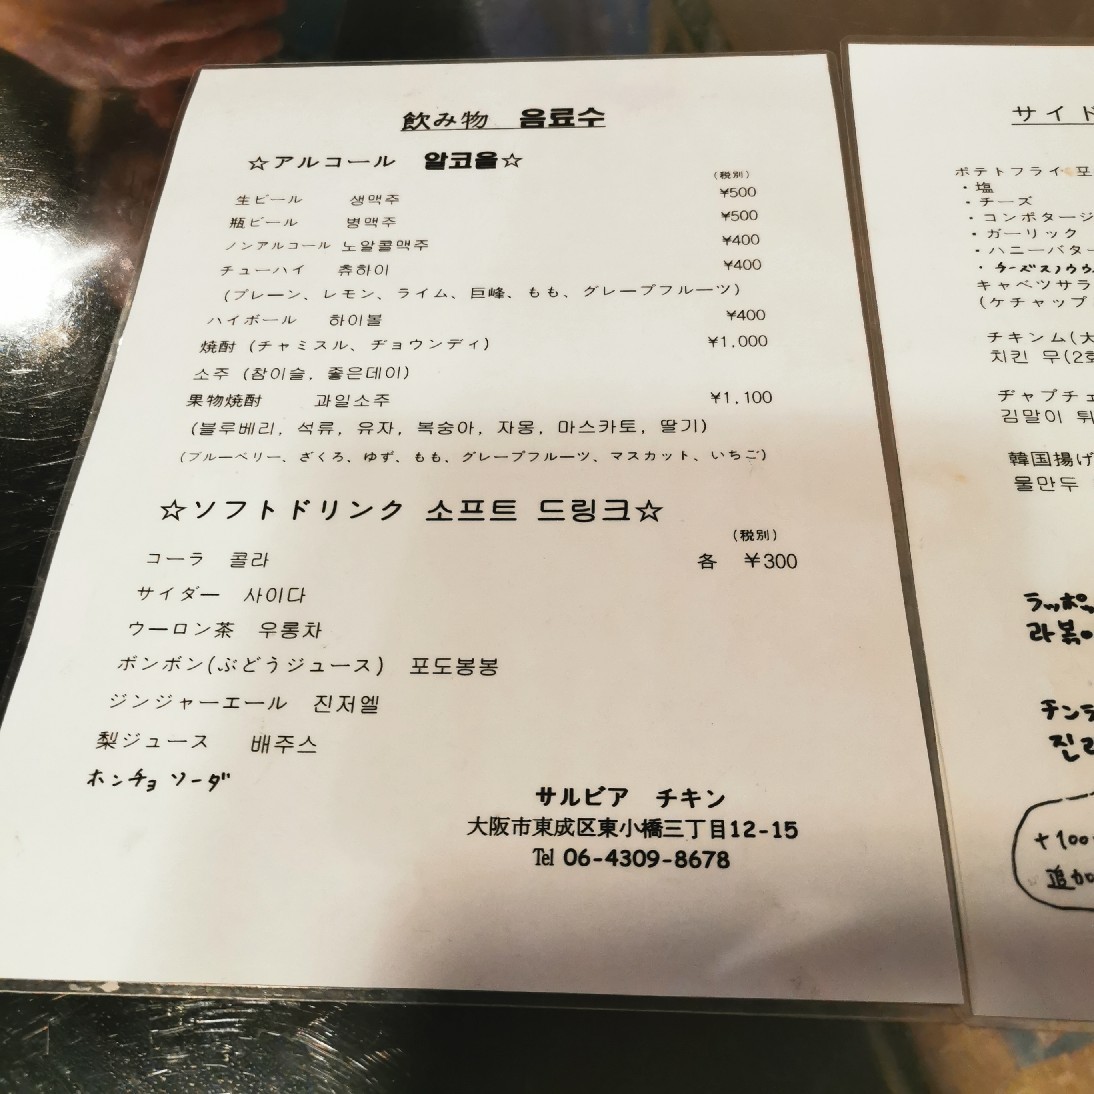 飲み物 음료수
☆アルコール 알코올☆
(税別)
生ビール 생맥주 ¥500
瓶ビール 병맥주 ¥500
ノンアルコール 노알콜맥주 ¥400
チューハイ 츄하이 ¥400
(プレーン、レモン、ライム、巨峰、もも、グレープフルーツ)
ハイボール 하이볼 ¥400
焼酎 (チャミスル、ヂョウンディ) ¥1,000
소주 (참이슬, 좋은데이)
果物焼酎 과일소주 ¥1,100
(블루베리, 석류, 유자, 복숭아, 자몽, 마스카토, 딸기)
(ブルーベリー、ざくろ、ゆず、もも、グレープフルーツ、マスカット、いちご)
☆ソフトドリンク 소프트 드링크☆
(税別)
コーラ 콜라 各 ¥300
サイダー 사이다
ウーロン茶 우롱차
ボンボン(ぶどうジュース) 포도봉봉
ジンジャーエール 진저엘
梨ジュース 배주스
ホンチョ ソーダ
サルビア チキン
大阪市東成区東小橋三丁目12-15
Tel 06-4309-8678
サイド
ポテトフライ 포
・塩
・チーズ
・コンポタージ
・ガーリック
・ハニーバター
・チーズスノウ
キャベツサラ
(ケチャップ
チキンム(大
치킨 무(2호
ヂャプチェ
김말이 튀
韓国揚げ
물만두
ラッポッ
라볶이
チンラ
진라
+100
追加